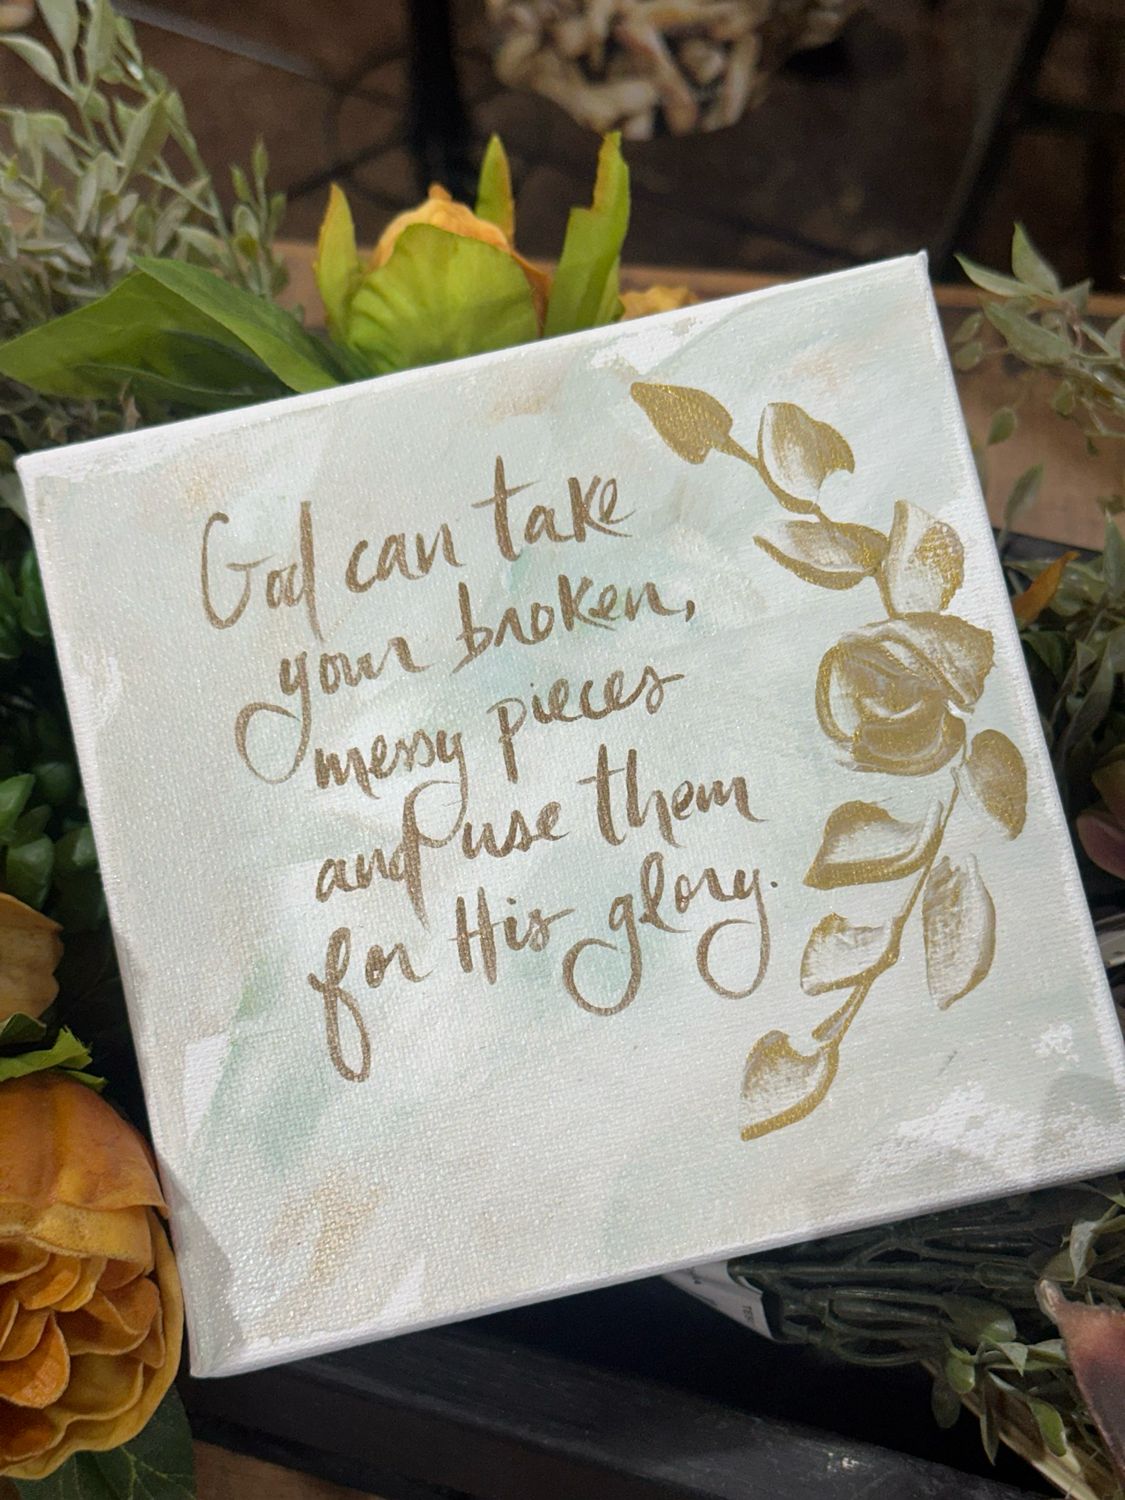 God can take
your broken,
messy pieces
and use them
for His glory.